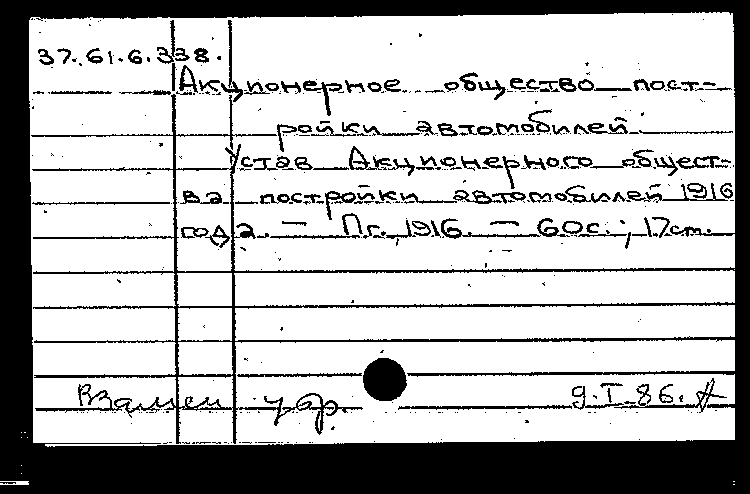 37.61.6.338.
Акционерное общество пост-
ройки автомобилей.
Устав Акционерного общест-
ва постройки автомобилей 1916
года. — Пг., 1916. — 60с.; 17см.
Взамен утр. 9.I.86.